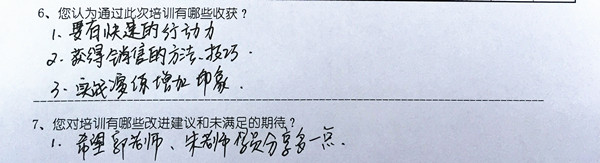 6、您认为通过此次培训有哪些收获?
1. 要有快速的行动力
2. 获得销售的方法、技巧.
3. 实战演练增加印象.
7、您对培训有哪些改进建议和未满足的期待?
1. 希望郭老师、朱老师学员分享多一点.